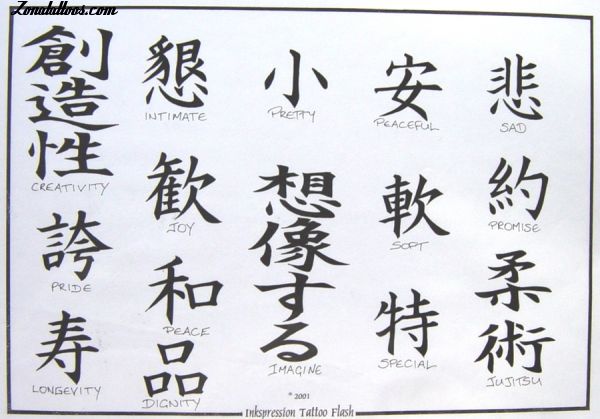 ZonaTattoos.com
創造性
CREATIVITY
誇
PRIDE
寿
LONGEVITY
懇
INTIMATE
歓
JOY
和
PEACE
品
DIGNITY
小
PRETTY
想像する
IMAGINE
安
PEACEFUL
軟
SOFT
特
SPECIAL
悲
SAD
約
PROMISE
柔術
JUJITSU
© 2001
Inkspression Tattoo Flash